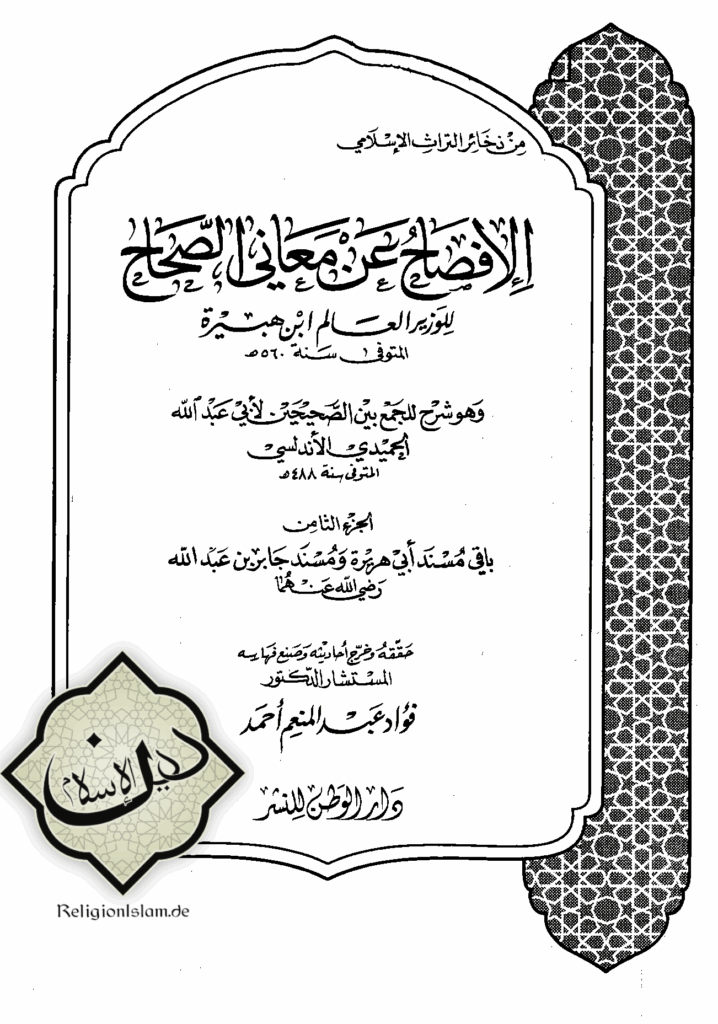 من ذخائر التراث الإسلامي
الإفصاح عن معاني الصحاح
للوزير العالم ابن هبيرة
المتوفى سنة ٥٦٠هـ
وهو شرح للجمع بين الصحيحين لأبي عبد الله
الحميدي الأندلسي
المتوفى سنة ٤٨٨هـ
الجزء الثامن
باقي مسند أبي هريرة ومسند جابر بن عبد الله
رضي الله عنهما
حققه وخرج أحاديثه وصنع فهارسه
المستشار الدكتور
فؤاد عبد المنعم أحمد
دار الوطن للنشر
دين الإسلام
ReligionIslam.de